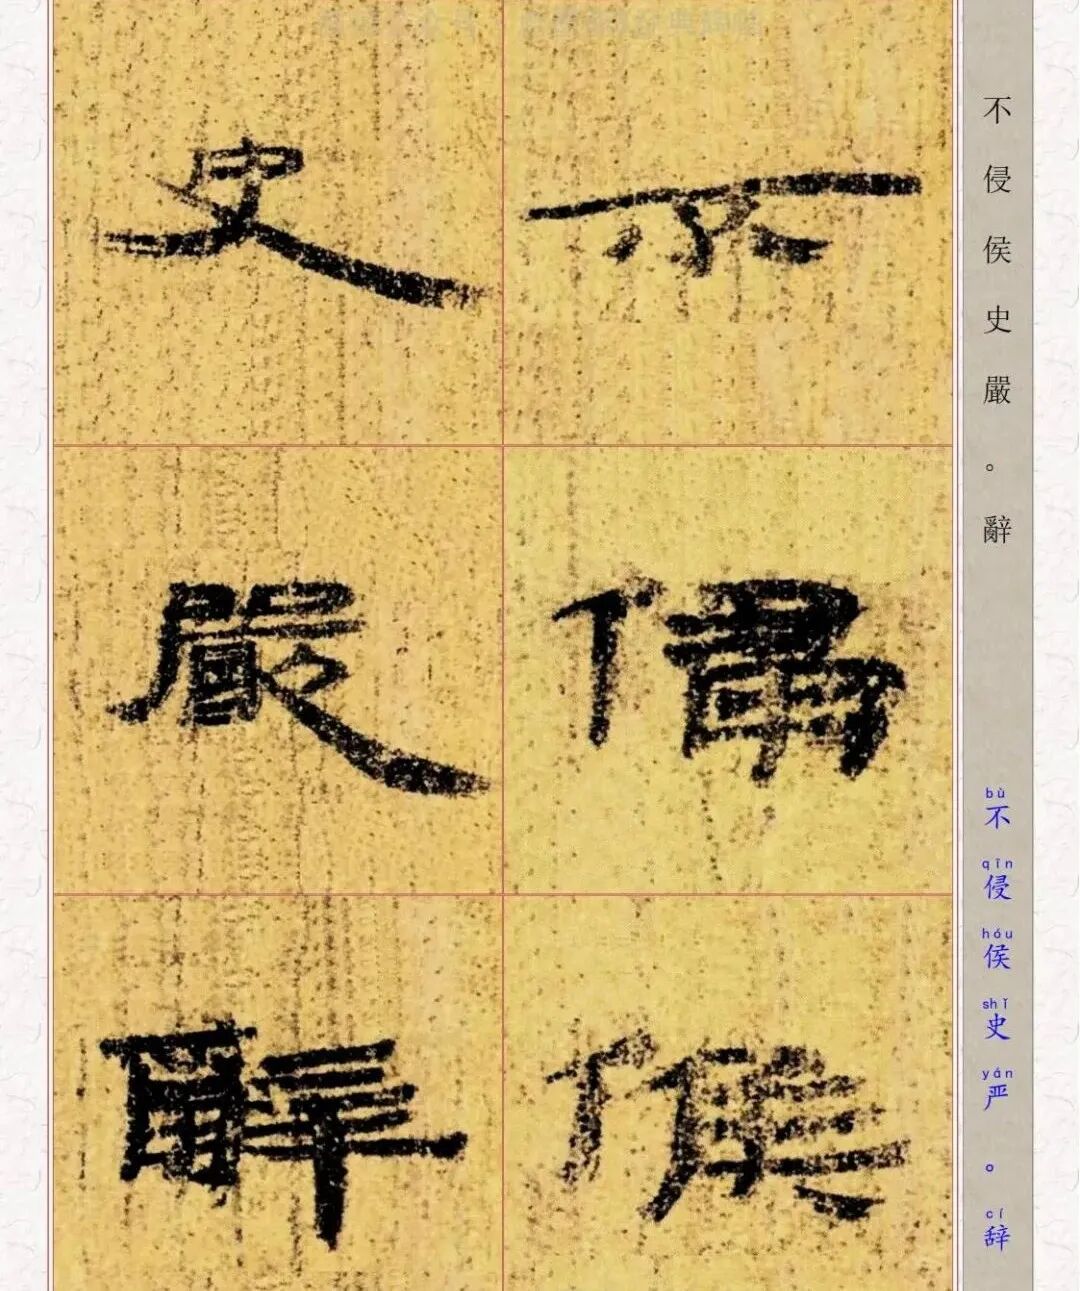 不侵侯
史嚴辭
不侵侯史嚴。辭
bù qīn hóu shǐ yán cí
不侵侯史严。辞